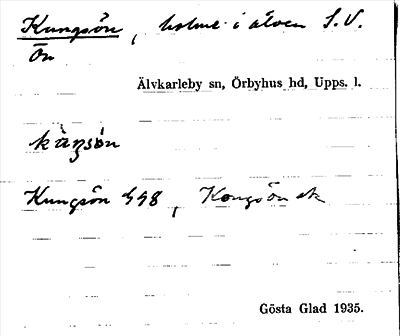 Kungsön, holme i älven S.V.
Ön
Älvkarleby sn, Örbyhus hd, Upps. l.
kùŋsön
Kungsön 448, Kongsön ek
Gösta Glad 1935.